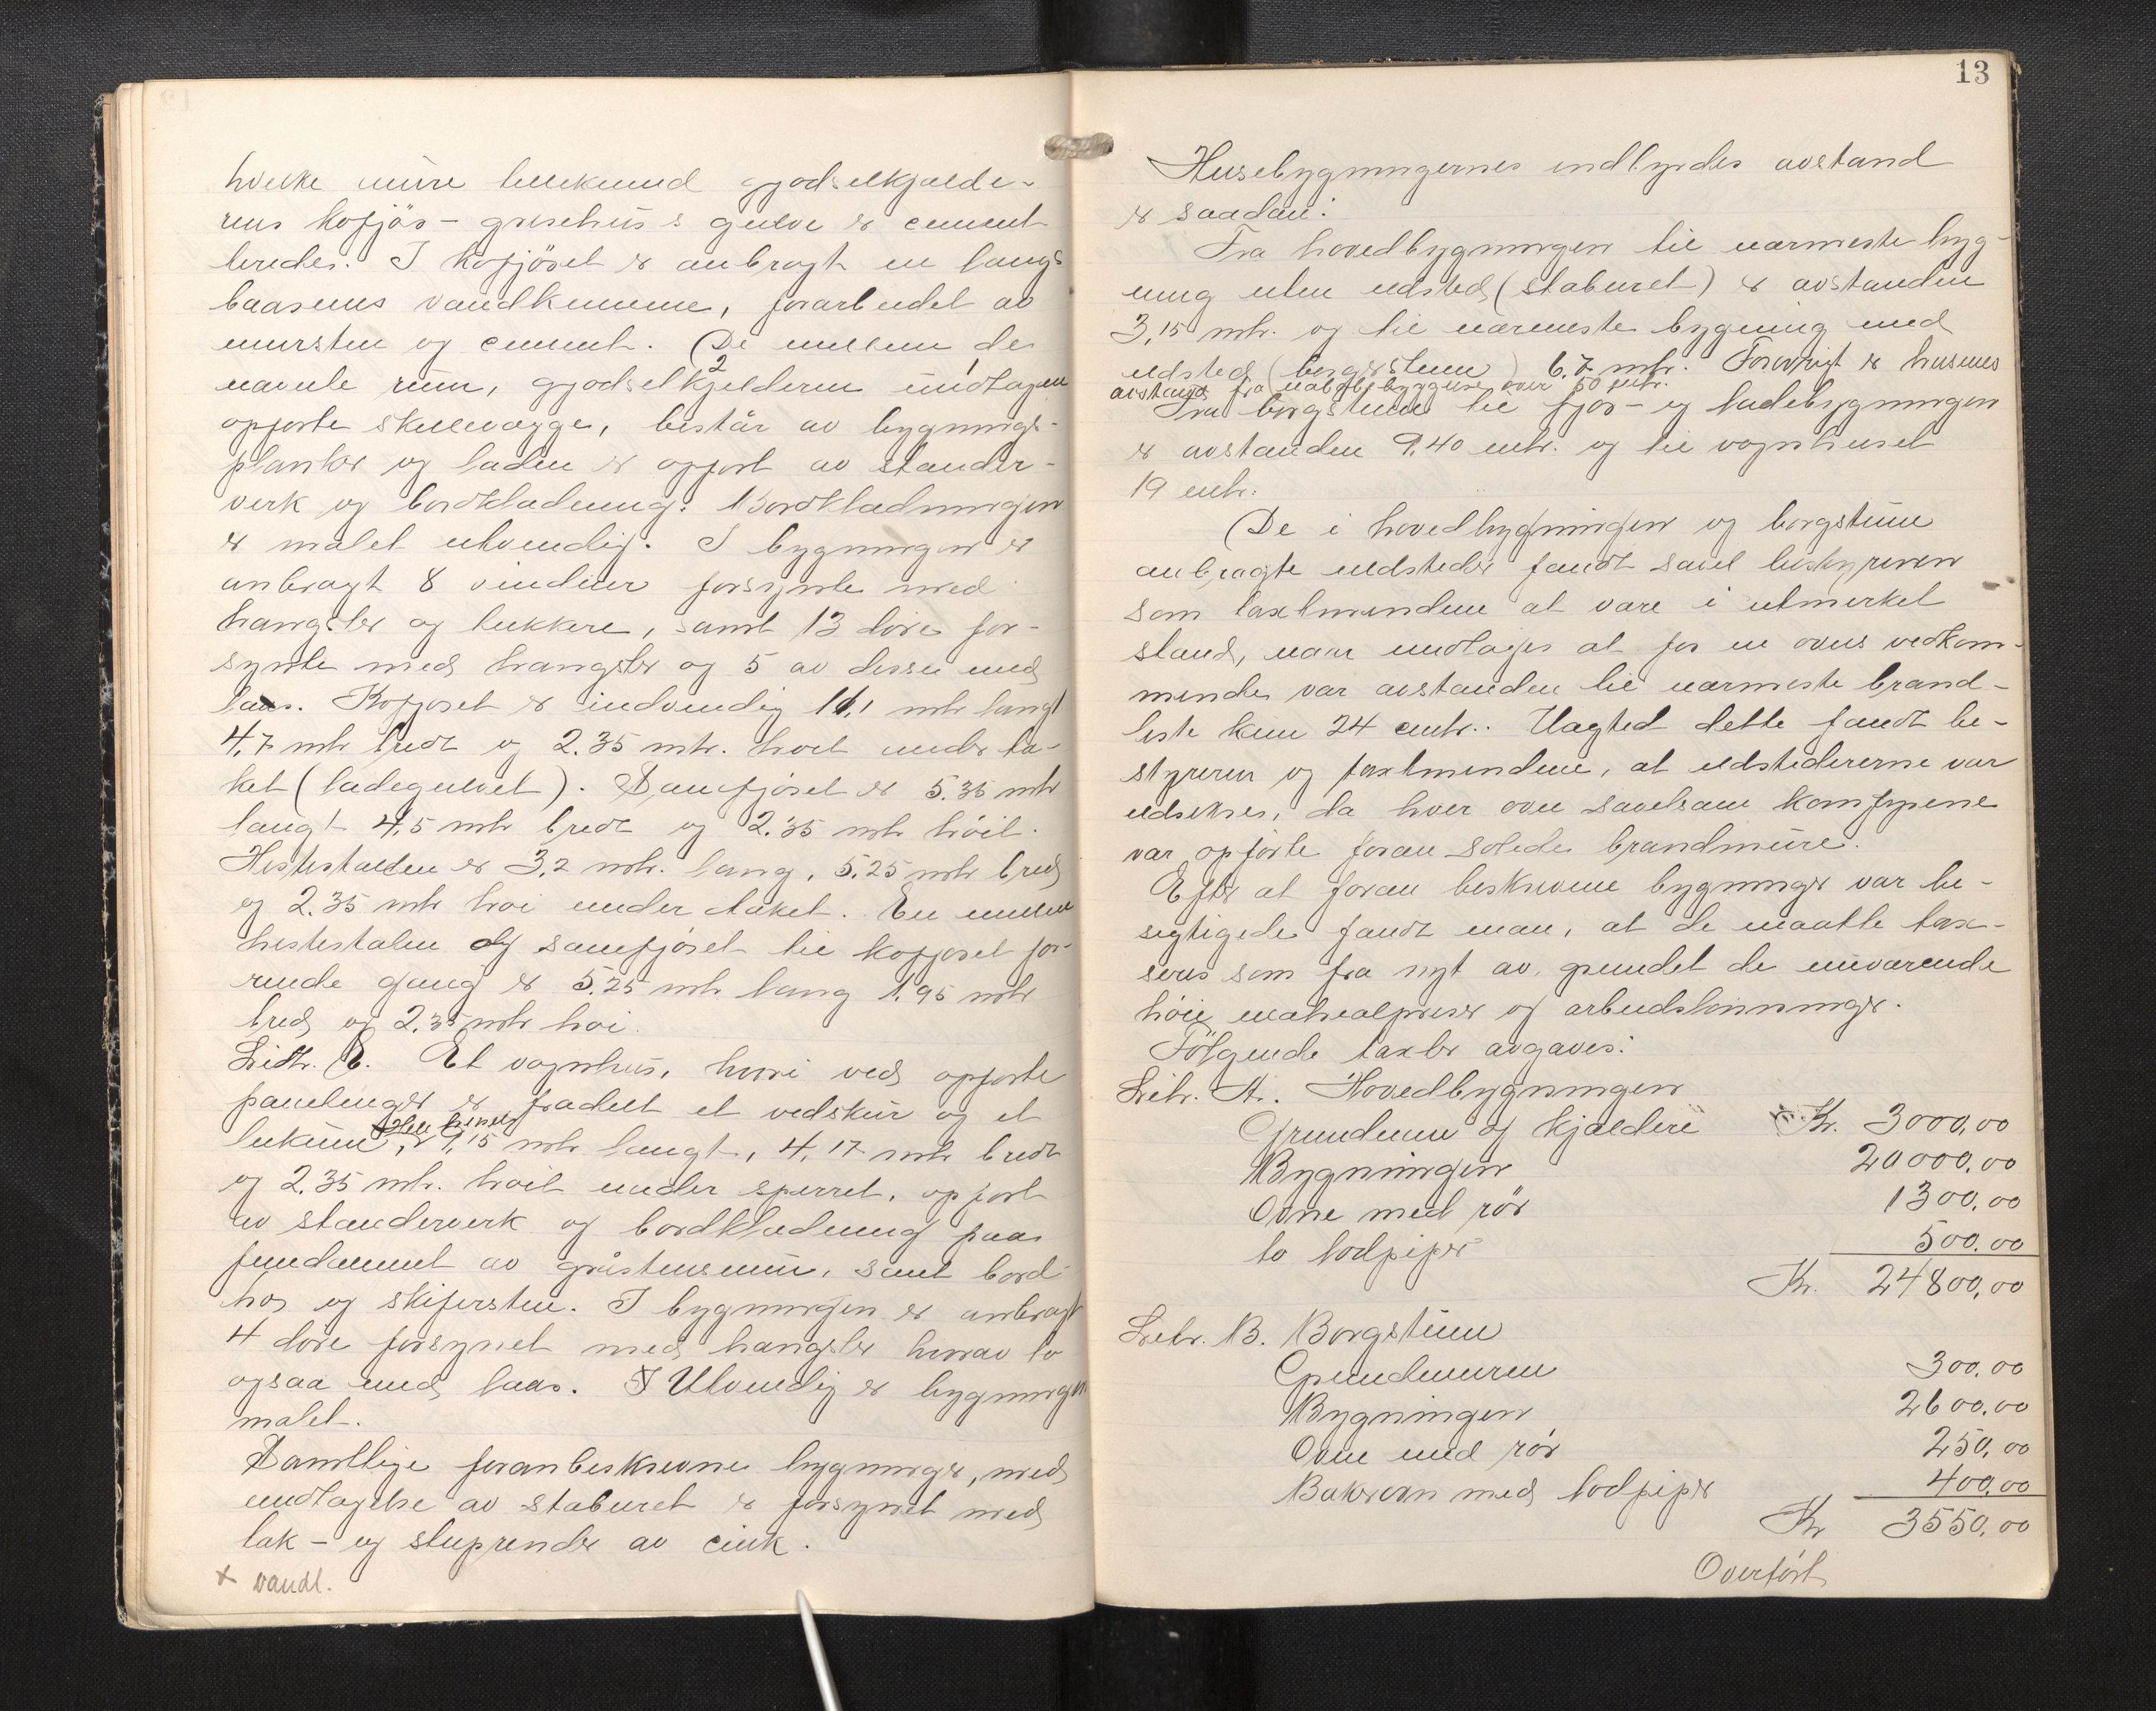 hvilke mure gjödselkjelde-
rens kofjös- grisehus's gulve er cement
beredes. I kofjöset er anbragt en langs
baasenes vandkumme, forarbeidet av
mursten og cement. De 2 mellem de
nævnte rum, gjödselkjelderen undtagen
opførte skillevægge, består av bygnings-
planker og laden er opført av stander-
verk og bordklædning. Bordklædningen
er malet utvendig. I bygningen er
anbragt 8 vinduer forsynte med
hangsler og lukkere, samt 13 döre for-
synte med hangsler og 5 av disse med
laas. Kofjöset er indvendig 11,1 mtr langt
4,7 mtr bredt og 2.35 mtr. høit under ta-
ket (ladegulvet). Saufjöset er 5.35 mtr
langt 4,5 mtr bredt og 2.35 mtr höit.
Hestestalden er 3,2 mtr. lang, 5,25 mtr bred
og 2.35 mtr høi under taket. En mellem
hestestalen og saufjöset til kofjöset fö-
rende gang er 5.25 mtr lang 1,95 mtr
bred og 2.35 mtr høi.
Litr. E. Et vognhus, hvori ved opførte
panelinger er fradelt et vedskur og et
lukum, er 7,15 mtr langt, 4,17 mtr bredt
og 2,35 mtr. høit under sperret, opført
av standerverk og bordklædning paa
fundament av gråstensmur, samt bord-
hos og skifersten. I bygningen er anbragt
4 döre forsynet med hangsler hvorav to
ogsaa med laas. Utvendig er bygningen
malet.
Samtlige foranbeskrevne bygninger, med
undtagelse av staburet er forsynet med
tak- og sluprender av cink.
x vandl.
13
Husebygningernes indbyrdes avstand
er saadan:
Fra hovedbygningen til nærmeste byg-
ning uten ildsted (staburet) er avstanden
3,15 mtr. og til nærmeste bygning med
ildsted (borgestuen) 6.7 mtr. Forøvrigt er husenes
avstand fra nabobebyggelse over 50 mtr.
Fra borgstuen til fjös- og ladebygningen
er avstanden 9,40 mtr. og til vognhuset
19 mtr.
De i hovedbygningen og borgstuen
anbragte ildsteder fandt såvel bestyreren
som taxtmendene at være i utmerket
stand, naar undtages at for en ovns vedkom-
mende var avstanden til nærmeste brand-
liste kun 24 cmtr. Uagted dette fandt be-
styreren og taxtmendene, at ildstederne var
ildsikre, da hver ovn såvelsom komfyrene
var opførte foran solide brandmure.
Efter at foran beskrevne bygninger var be-
sigtigede fandt man, at de maatte tax-
eres som fra nyt av, grundet de nuværende
höie materialpriser og arbeidslönninger.
Fölgende taxter avgaves:
Litr. A. Hovedbygningen
Grundmur og kjeldere Kr. 3000,00
Bygningen 20000,00
Ovne med rör 1300,00
to lodpiper 500,00
Kr. 24800,00
Litr. B. Borgstuen
Grundmuren 300,00
Bygningen 2600,00
Ovn med rör 250,00
Bakerovn med lodpiper 400,00
Kr 3550,00
Overfört